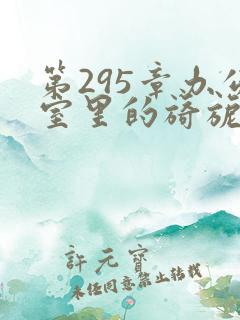 第295章办公
室里的旖旎
許元寶
未经同意禁止转载